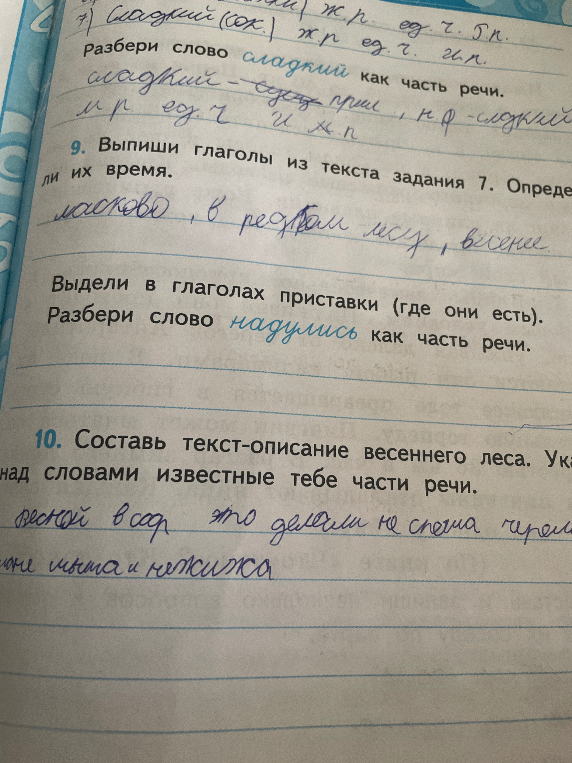 ж.р. ед.ч. Т п.
7) Сладкий (сок.) ж р ед.ч. И.п.
Разбери слово сладкий как часть речи.
сладкий - прил, н ф - слдкий
м р ед.ч И п
9. Выпиши глаголы из текста задания 7. Опреде
ли их время.
ласково, в редком лесу,
Выдели в глаголах приставки (где они есть).
Разбери слово надулись как часть речи.
10. Составь текст-описание весеннего леса. Ука
над словами известные тебе части речи.
весной в сар это делали не спеша